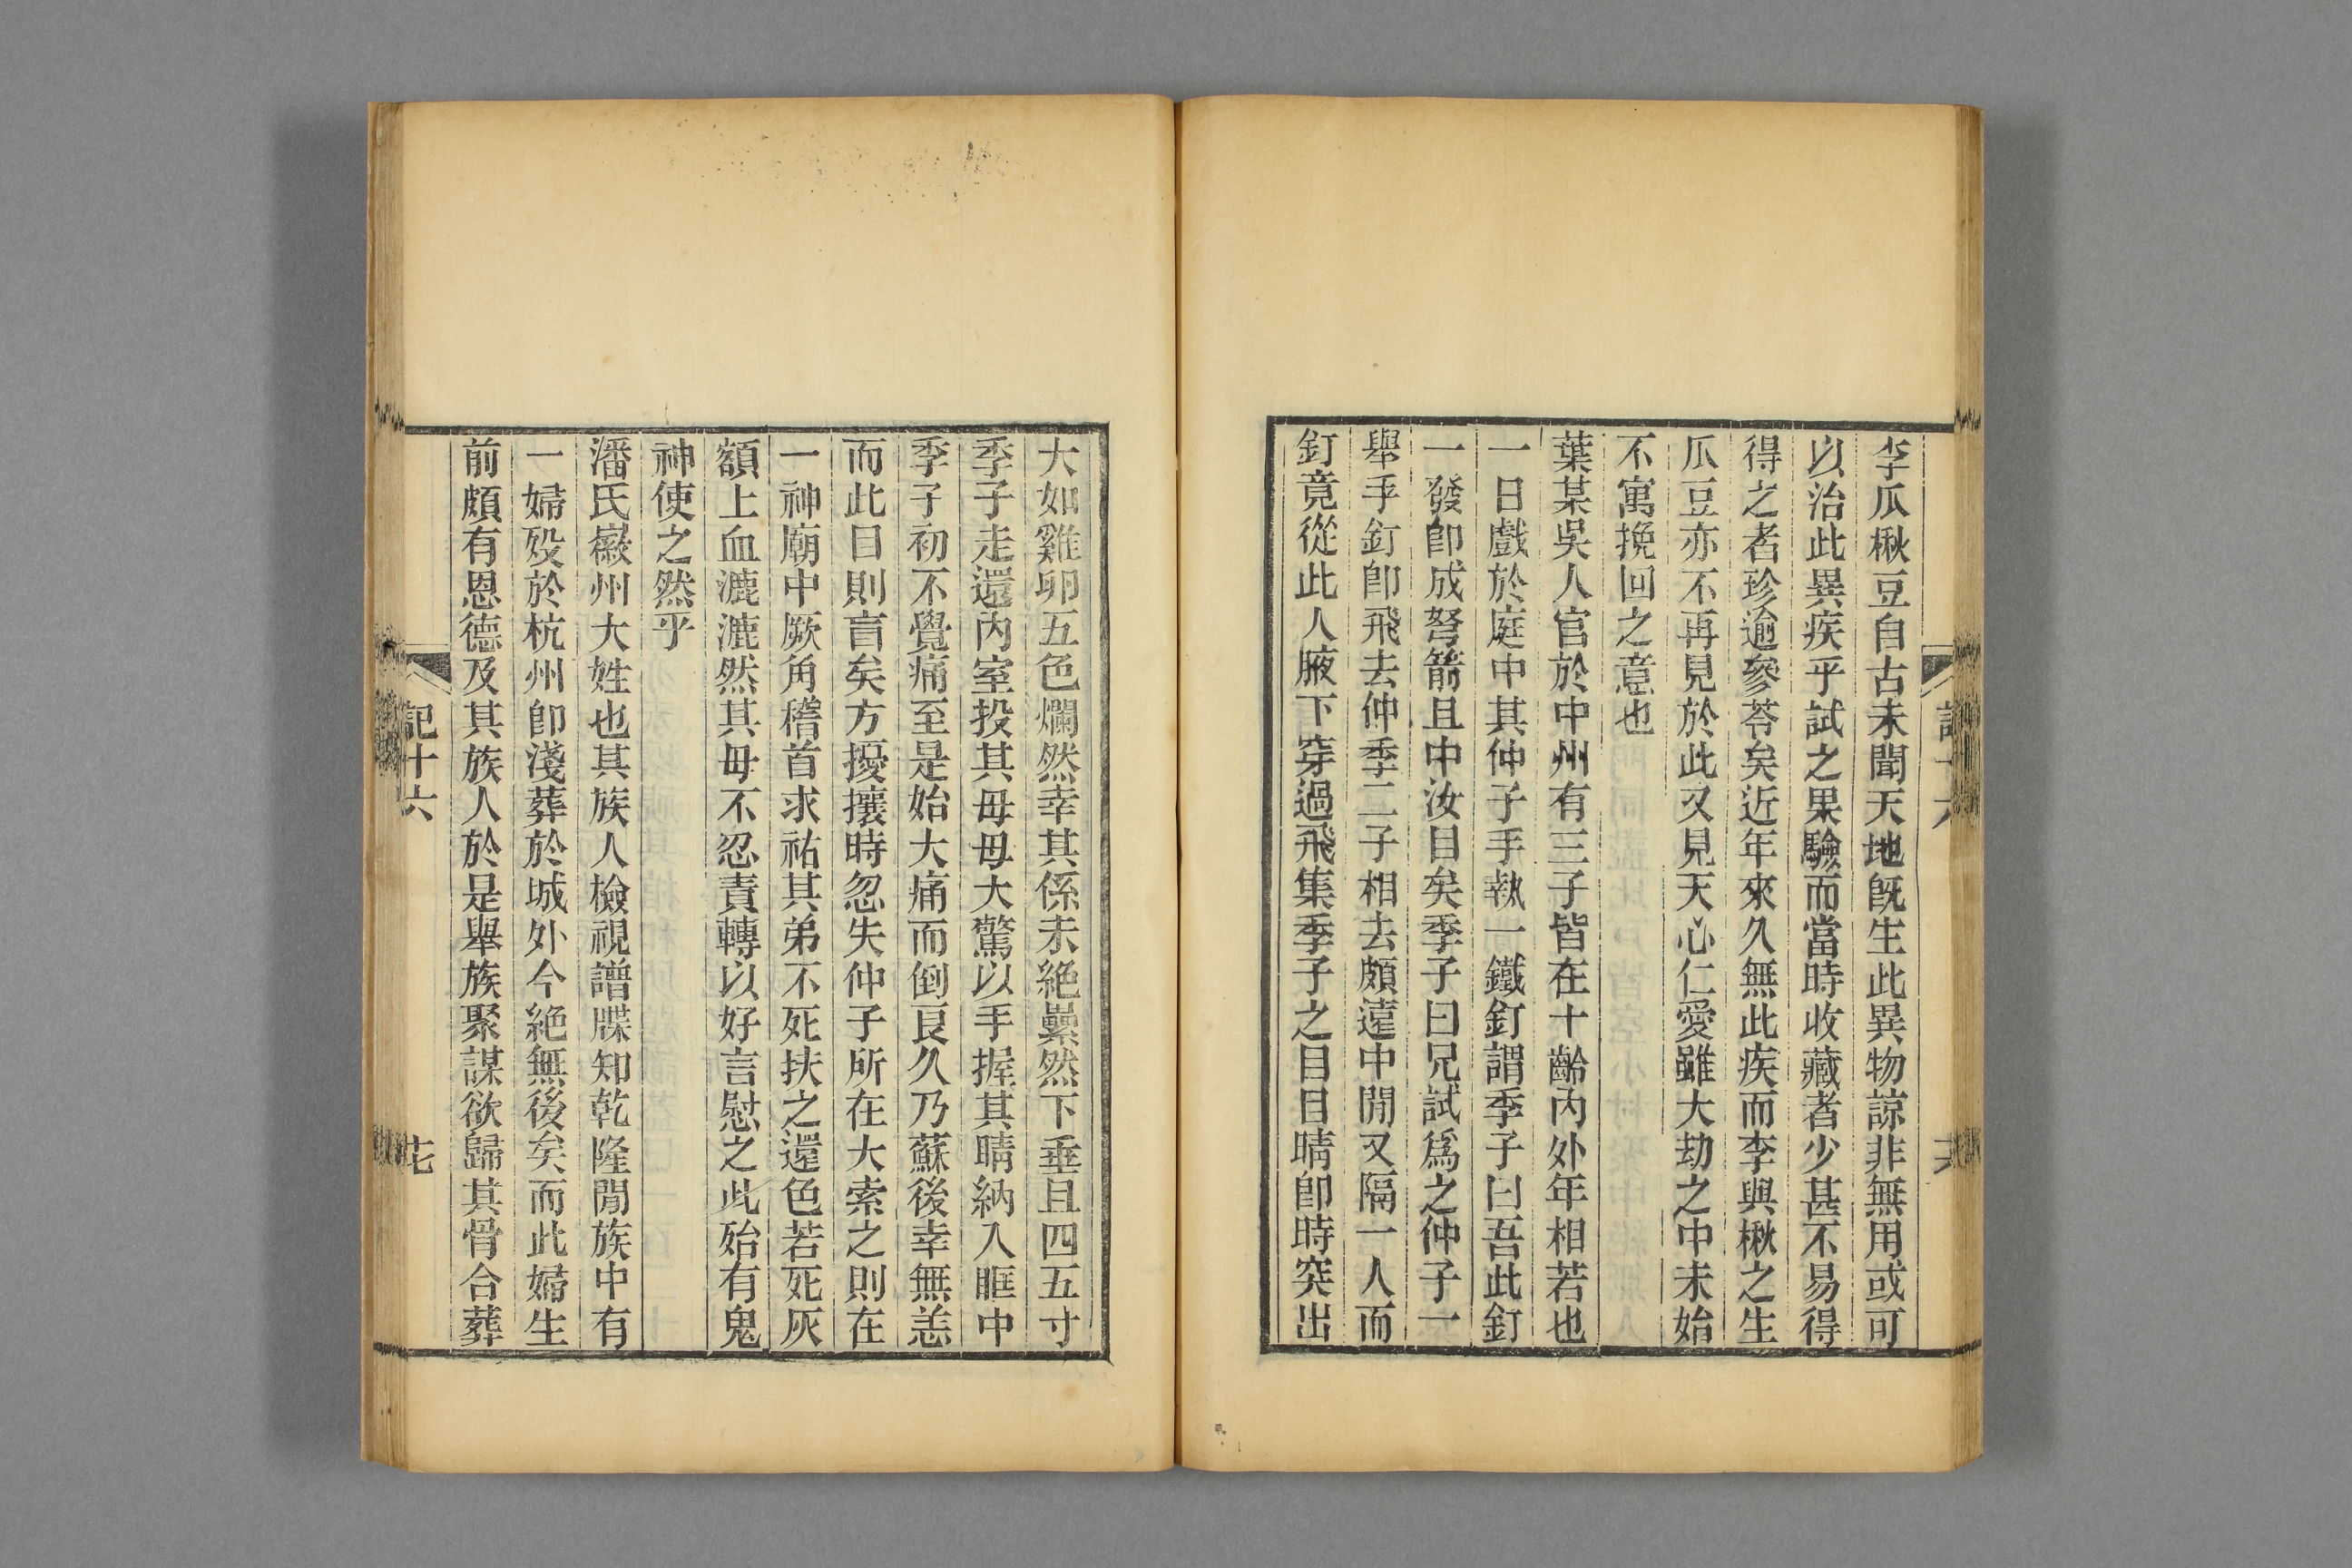 李瓜楸豆自古未聞天地旣生此異物諒非無用或可
以治此異疾乎試之果驗而當時收藏者少甚不易得
得之者珍逾參苓矣近年來久無此疾而李與楸之生
瓜豆亦不再見於此又見天心仁愛雖大劫之中未始
不寓挽回之意也
葉某吳人官於中州有三子皆在十齡內外年相若也
一日戲於庭中其仲子手執一鐵釘謂季子曰吾此釘
一發卽成弩箭且中汝目矣季子曰兄試爲之仲子一
舉手釘卽飛去仲季二子相去頗遠中閒又隔一人而
釘竟從此人腋下穿過飛集季子之目目睛卽時突出
大如雞卵五色爛然幸其係未絕纍然下垂且四五寸
季子走還內室投其母母大驚以手握其睛納入眶中
季子初不覺痛至是始大痛而倒良久乃蘇後幸無恙
而此目則盲矣方擾攘時忽失仲子所在大索之則在
一神廟中厥角稽首求祐其弟不死扶之還色若死灰
額上血漉漉然其母不忍責轉以好言慰之此殆有鬼
神使之然乎
潘氏徽州大姓也其族人檢視譜牒知乾隆閒族中有
一婦歿於杭州卽淺葬於城外今絕無後矣而此婦生
前頗有恩德及其族人於是舉族聚謀欲歸其骨合葬
記十六
七